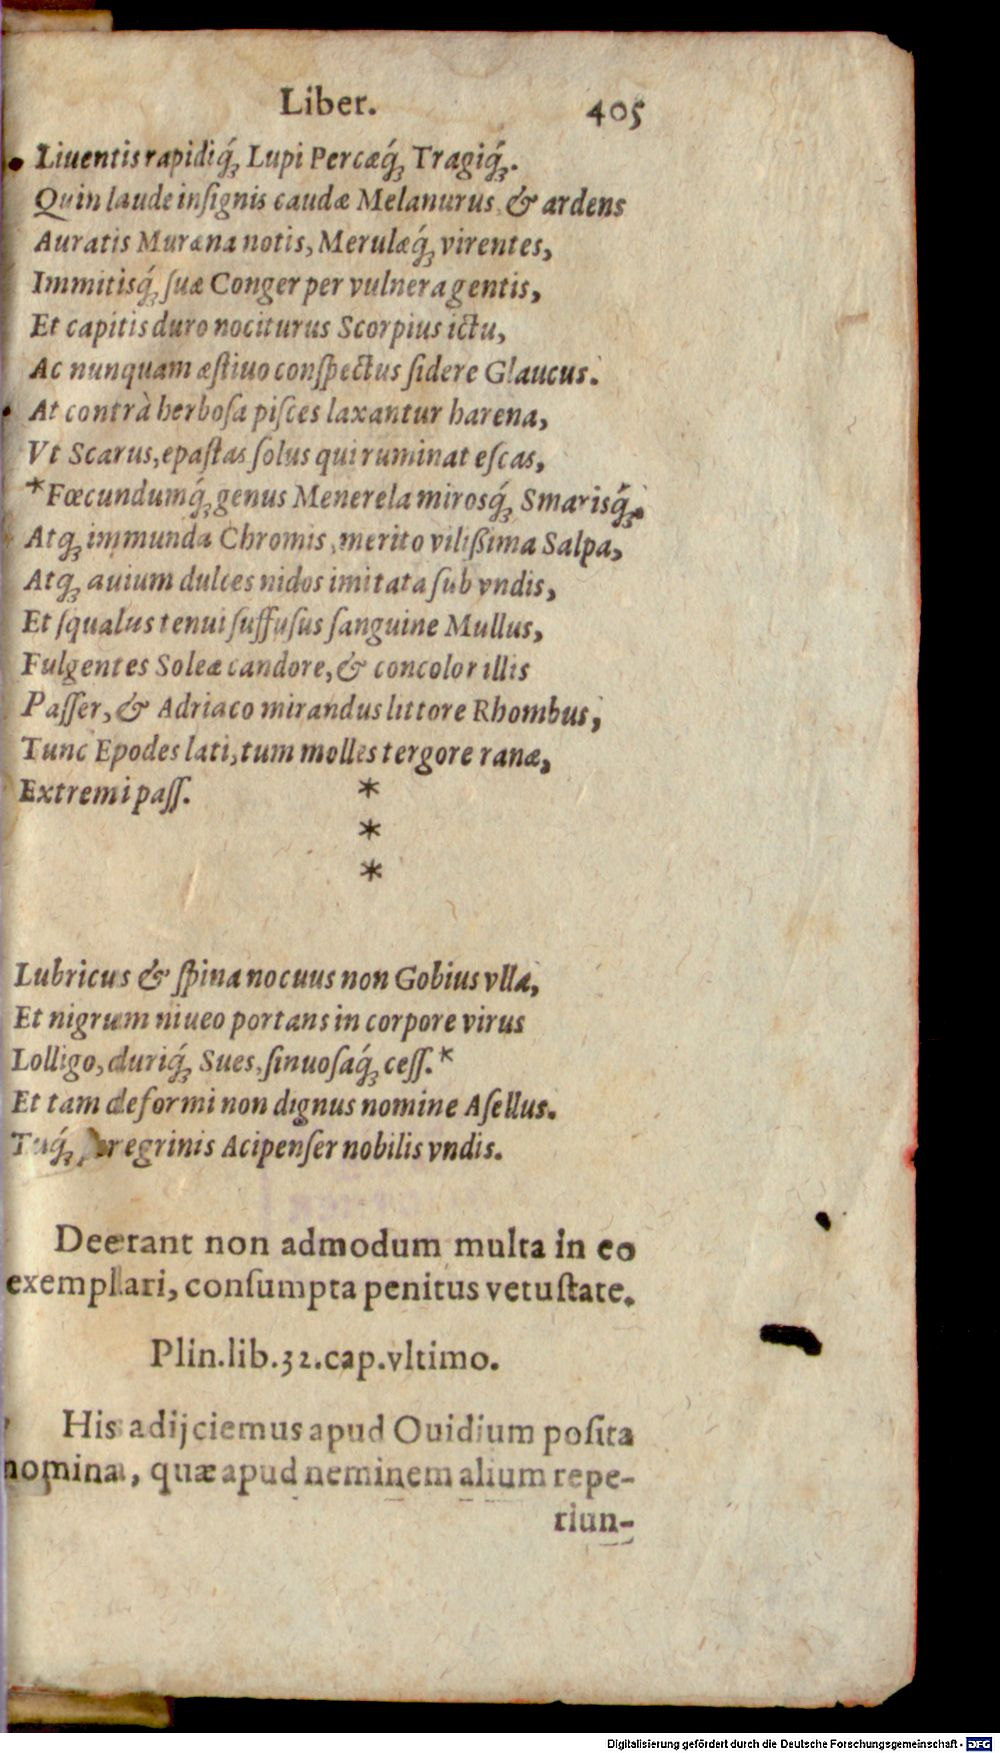 Liber. 405
Liuentis rapidiq́; Lupi Percæq́; Tragiq́;.
Quin laude inſignis caudæ Melanurus, & ardens
Auratis Muræna notis, Merulæq́; virentes,
Immitisq́; ſuæ Conger per vulnera gentis,
Et capitis duro nociturus Scorpius ictu,
Ac nunquam æſtiuo conſpectus ſidere Glaucus.
At contrà herboſa piſces laxantur harena,
Vt Scarus, epaſtas ſolus qui ruminat eſcas,
*Fœcundumq́; genus Menerela mirosq́; Smarisq́;.
Atq; immunda Chromis, merito vilißima Salpa,
Atq; auium dulces nidos imitata ſub vndis,
Et ſqualus tenui ſuffuſus ſanguine Mullus,
Fulgentes Soleæ candore, & concolor illis
Paſſer, & Adriaco mirandus littore Rhombus,
Tunc Epodes lati, tum molles tergore ranæ,
Extremi paſſ. *
*
*
Lubricus & ſpina nocuus non Gobius vlla,
Et nigrum niueo portans in corpore virus
Lolligo, duriq́; Sues, ſinuoſaq́; ceſſ.*
Et tam deformi non dignus nomine Aſellus.
Tuq́; peregrinis Acipenſer nobilis vndis.
Deerant non admodum multa in eo
exemplari, conſumpta penitus vetuſtate.
Plin.lib.32.cap.vltimo.
His adijciemus apud Ouidium poſita
nomina, quæ apud neminem alium repe-
riun-
Digitalisierung gefördert durch die Deutsche Forschungsgemeinschaft - DFG